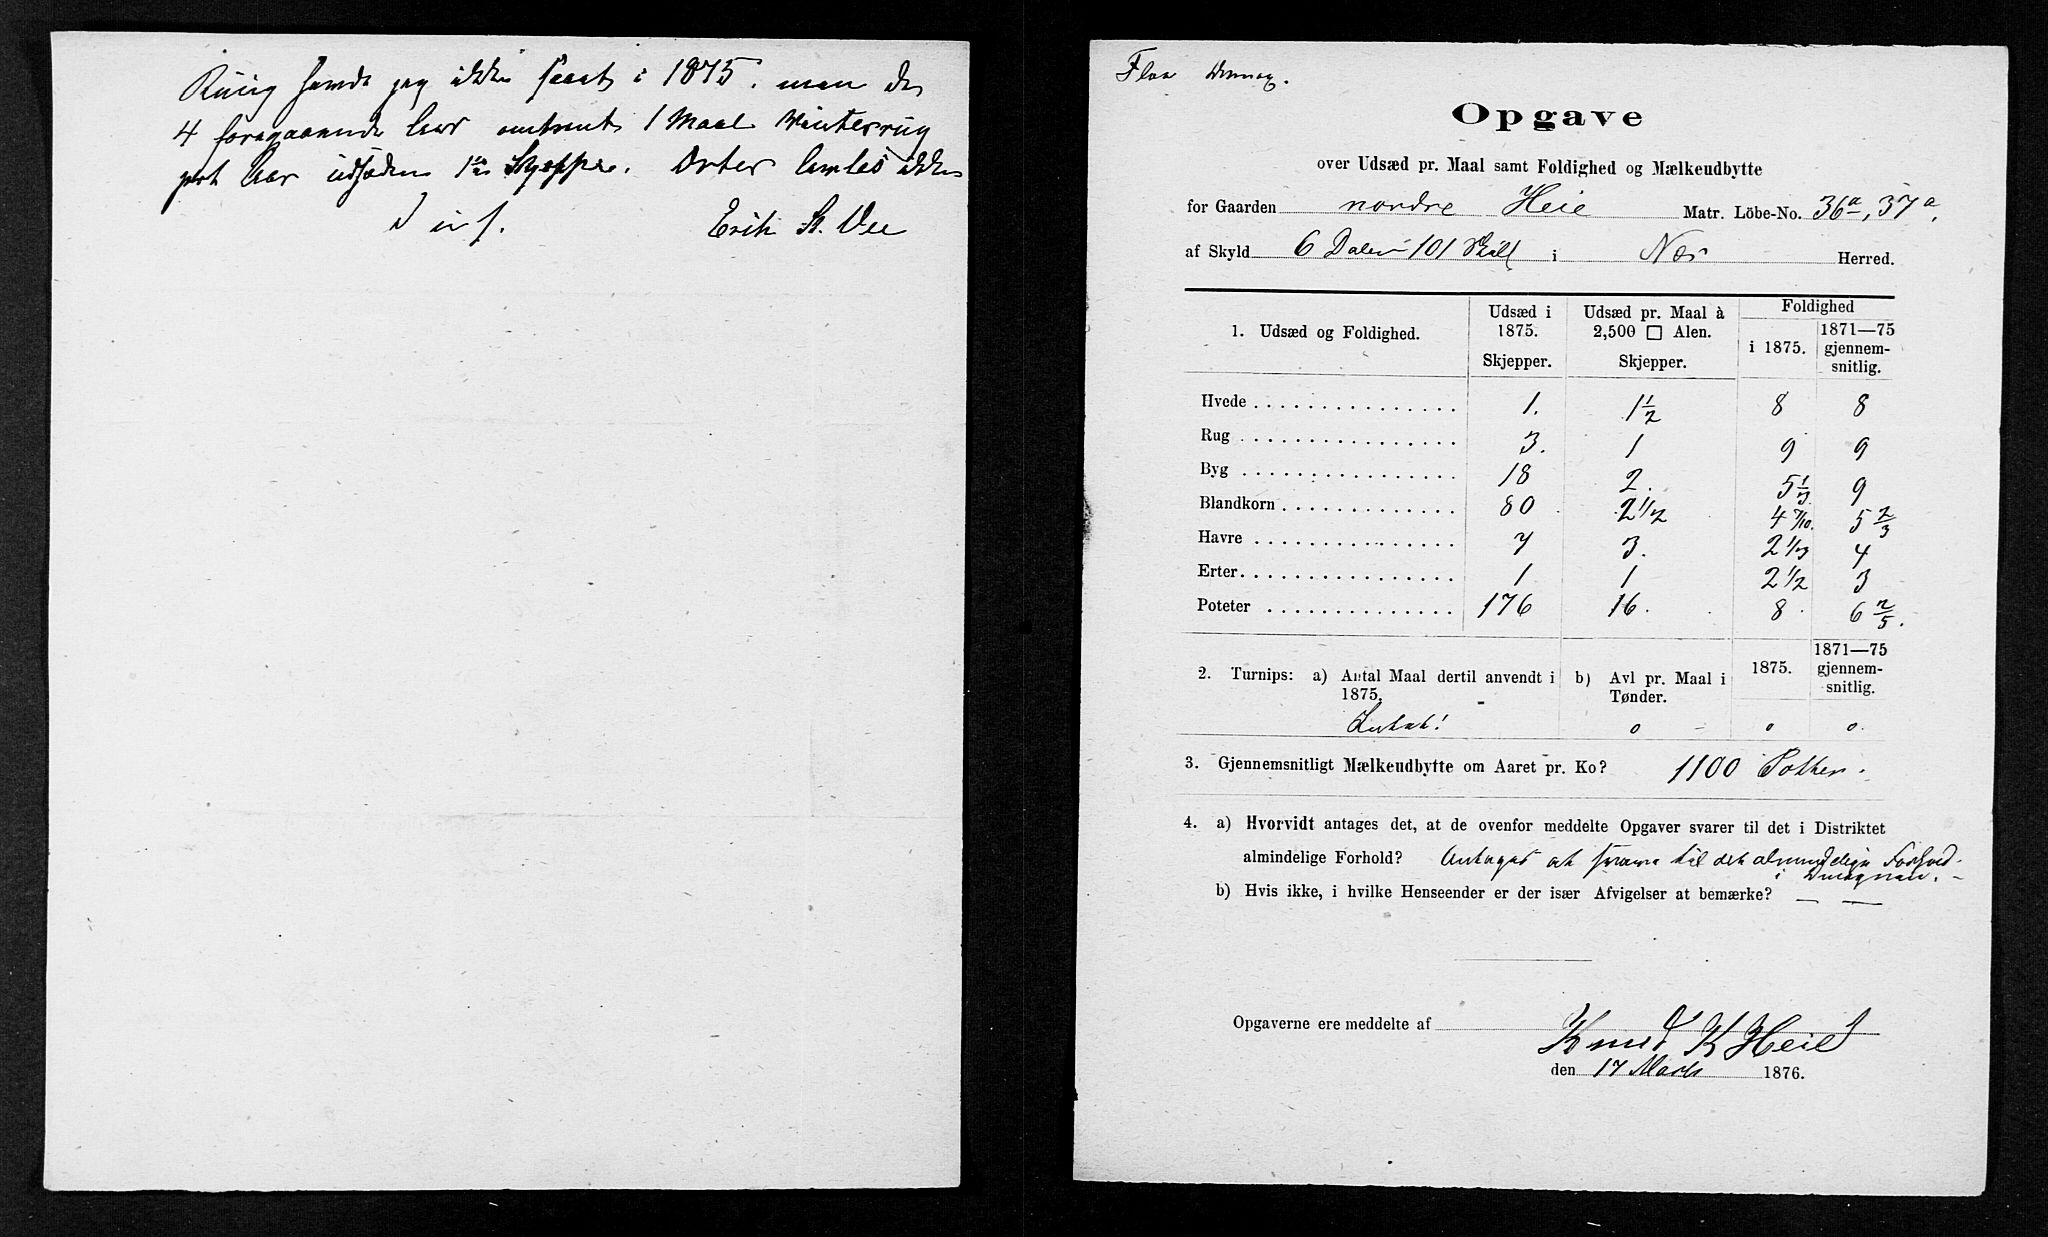 Ruug havde jeg ikke saaet i 1875. men de
4 foregaaende Aar omtrent 1 Maal Vinterrug
prt Aar udsæden Skjeppe. Erter ikke
D. u. s.
Erik K. Vee
Flaa
Opgave
over Udsæd pr. Maal samt Foldighed og Mælkeudbytte
for Gaarden nordre Heie Matr. Löbe-No. 36a, 37a.
af Skyld 6 Daler 101 Skill i Næs Herred.
1. Udsæd og Foldighed. Udsæd i 1875. Skjepper. Udsæd pr. Maal à 2,500 □ Alen. Skjepper. Foldighed i 1875. 1871—75 gjennemsnitlig.
Hvede 1. 1½ 8 8
Rug 3. 1 9 9
Byg 18 2. 5⅓ 9
Blandkorn 80 2½ 4 7/10. 5⅔
Havre 7 3. 2⅓ 4
Erter 1 1 2½ 3
Poteter 176 16. 8. 6 2/5.
2. Turnips: a) Antal Maal dertil anvendt i 1875. b) Avl pr. Maal i Tønder. 1875. 1871—75 gjennemsnitlig.
Intet! o – o o.
3. Gjennemsnitligt Mælkeudbytte om Aaret pr. Ko? 1100 Potter.
4. a) Hvorvidt antages det, at de ovenfor meddelte Opgaver svarer til det i Distriktet
almindelige Forhold? Antages at svare til det almindelige Forhold
i
b) Hvis ikke, i hvilke Henseender er der især Afvigelser at bemærke? — —
Opgaverne ere meddelte af Knud K Heie
den 17 Marts 1876.